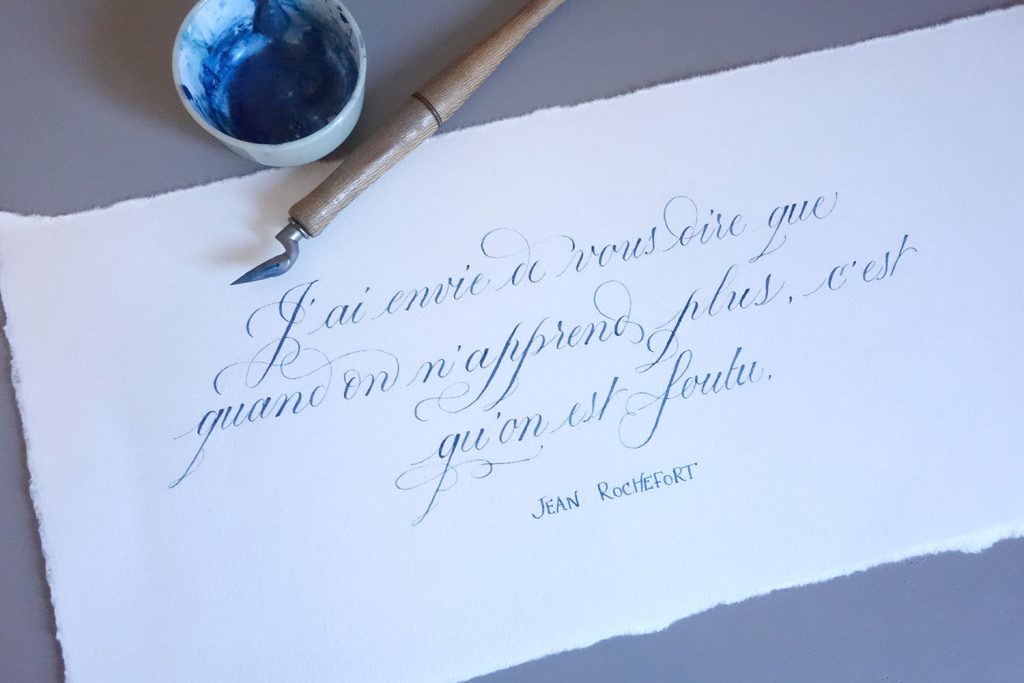 J'ai envie de vous dire que
quand on n'apprend plus, c'est
qu'on est foutu.
JEAN ROCHEFORT